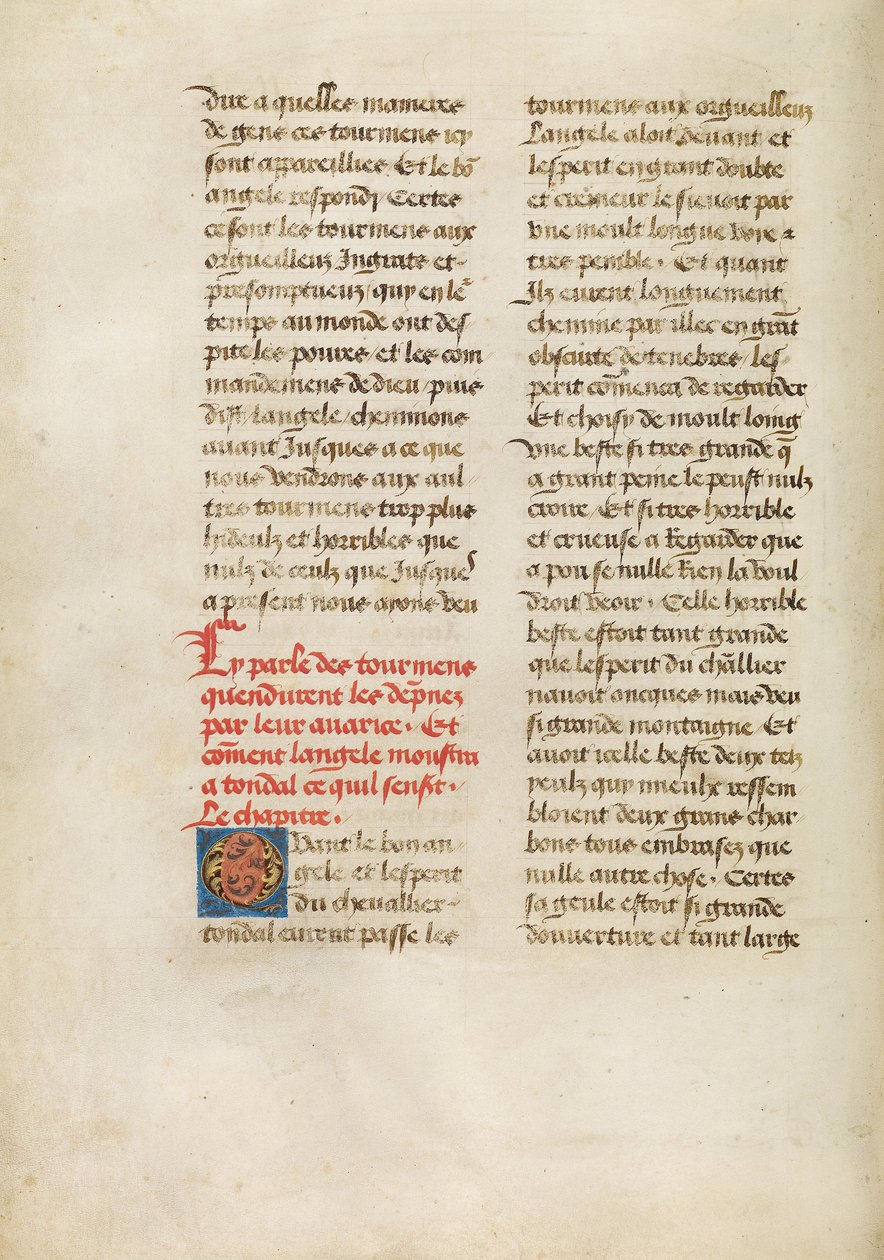 dire a quelles manieres
de gens ces tourmens icy
sont appareillies / Et le bō
angele respondy Certes
ce sont les tourmens aux
orgueilleuz Ingrats et
presomptueuz / quy en le
temps au monde ont des
pite les poures / et les com
mandemens de dieu / puis
dist langele / cheminons
auant Jusques a ce que
nous vendrons aux aul
tres tourmens trop plus
hideulz et horribles que
nulz de ceulz que Jusques
a present nous ayons veu
Cy parle des tourmens
quendurent les dāpnez
par leur auarice . Et
cōment langele moustra
a tondal ce quil senst .
Le chapitre .
Quant le bon an
gele et lesperit
du cheuallier
tondal eurent passe les
tourmens aux orgueilleuz
Langele aloit deuant et
lesperit en grant doubte
et cremeur le sieuoit par
vne moult longue voye et
tres penible . Et quant
Ilz eurent longuement
chemine par illec en grāt
obscurte de tenebres / les
perit cōmenca de regarder
Et choisy de moult loing
vne beste si tres grande q̄
a grant peine le peust nulz
croire / Et si tres horrible
et crueuse a Regarder que
a pou se nulle Rien la voul
droit veoir . Celle horrible
beste estoit tant grande
que lesperit du chāllier
nauoit oncques mais veu
si grande montaigne / Et
auoit icelle beste deux telz
yeulz quy mieulx ressem
bloient deux grans char
bons tous embrasez que
nulle autre chose . Certes
sa geule estoit si grande
douuerture et tant large